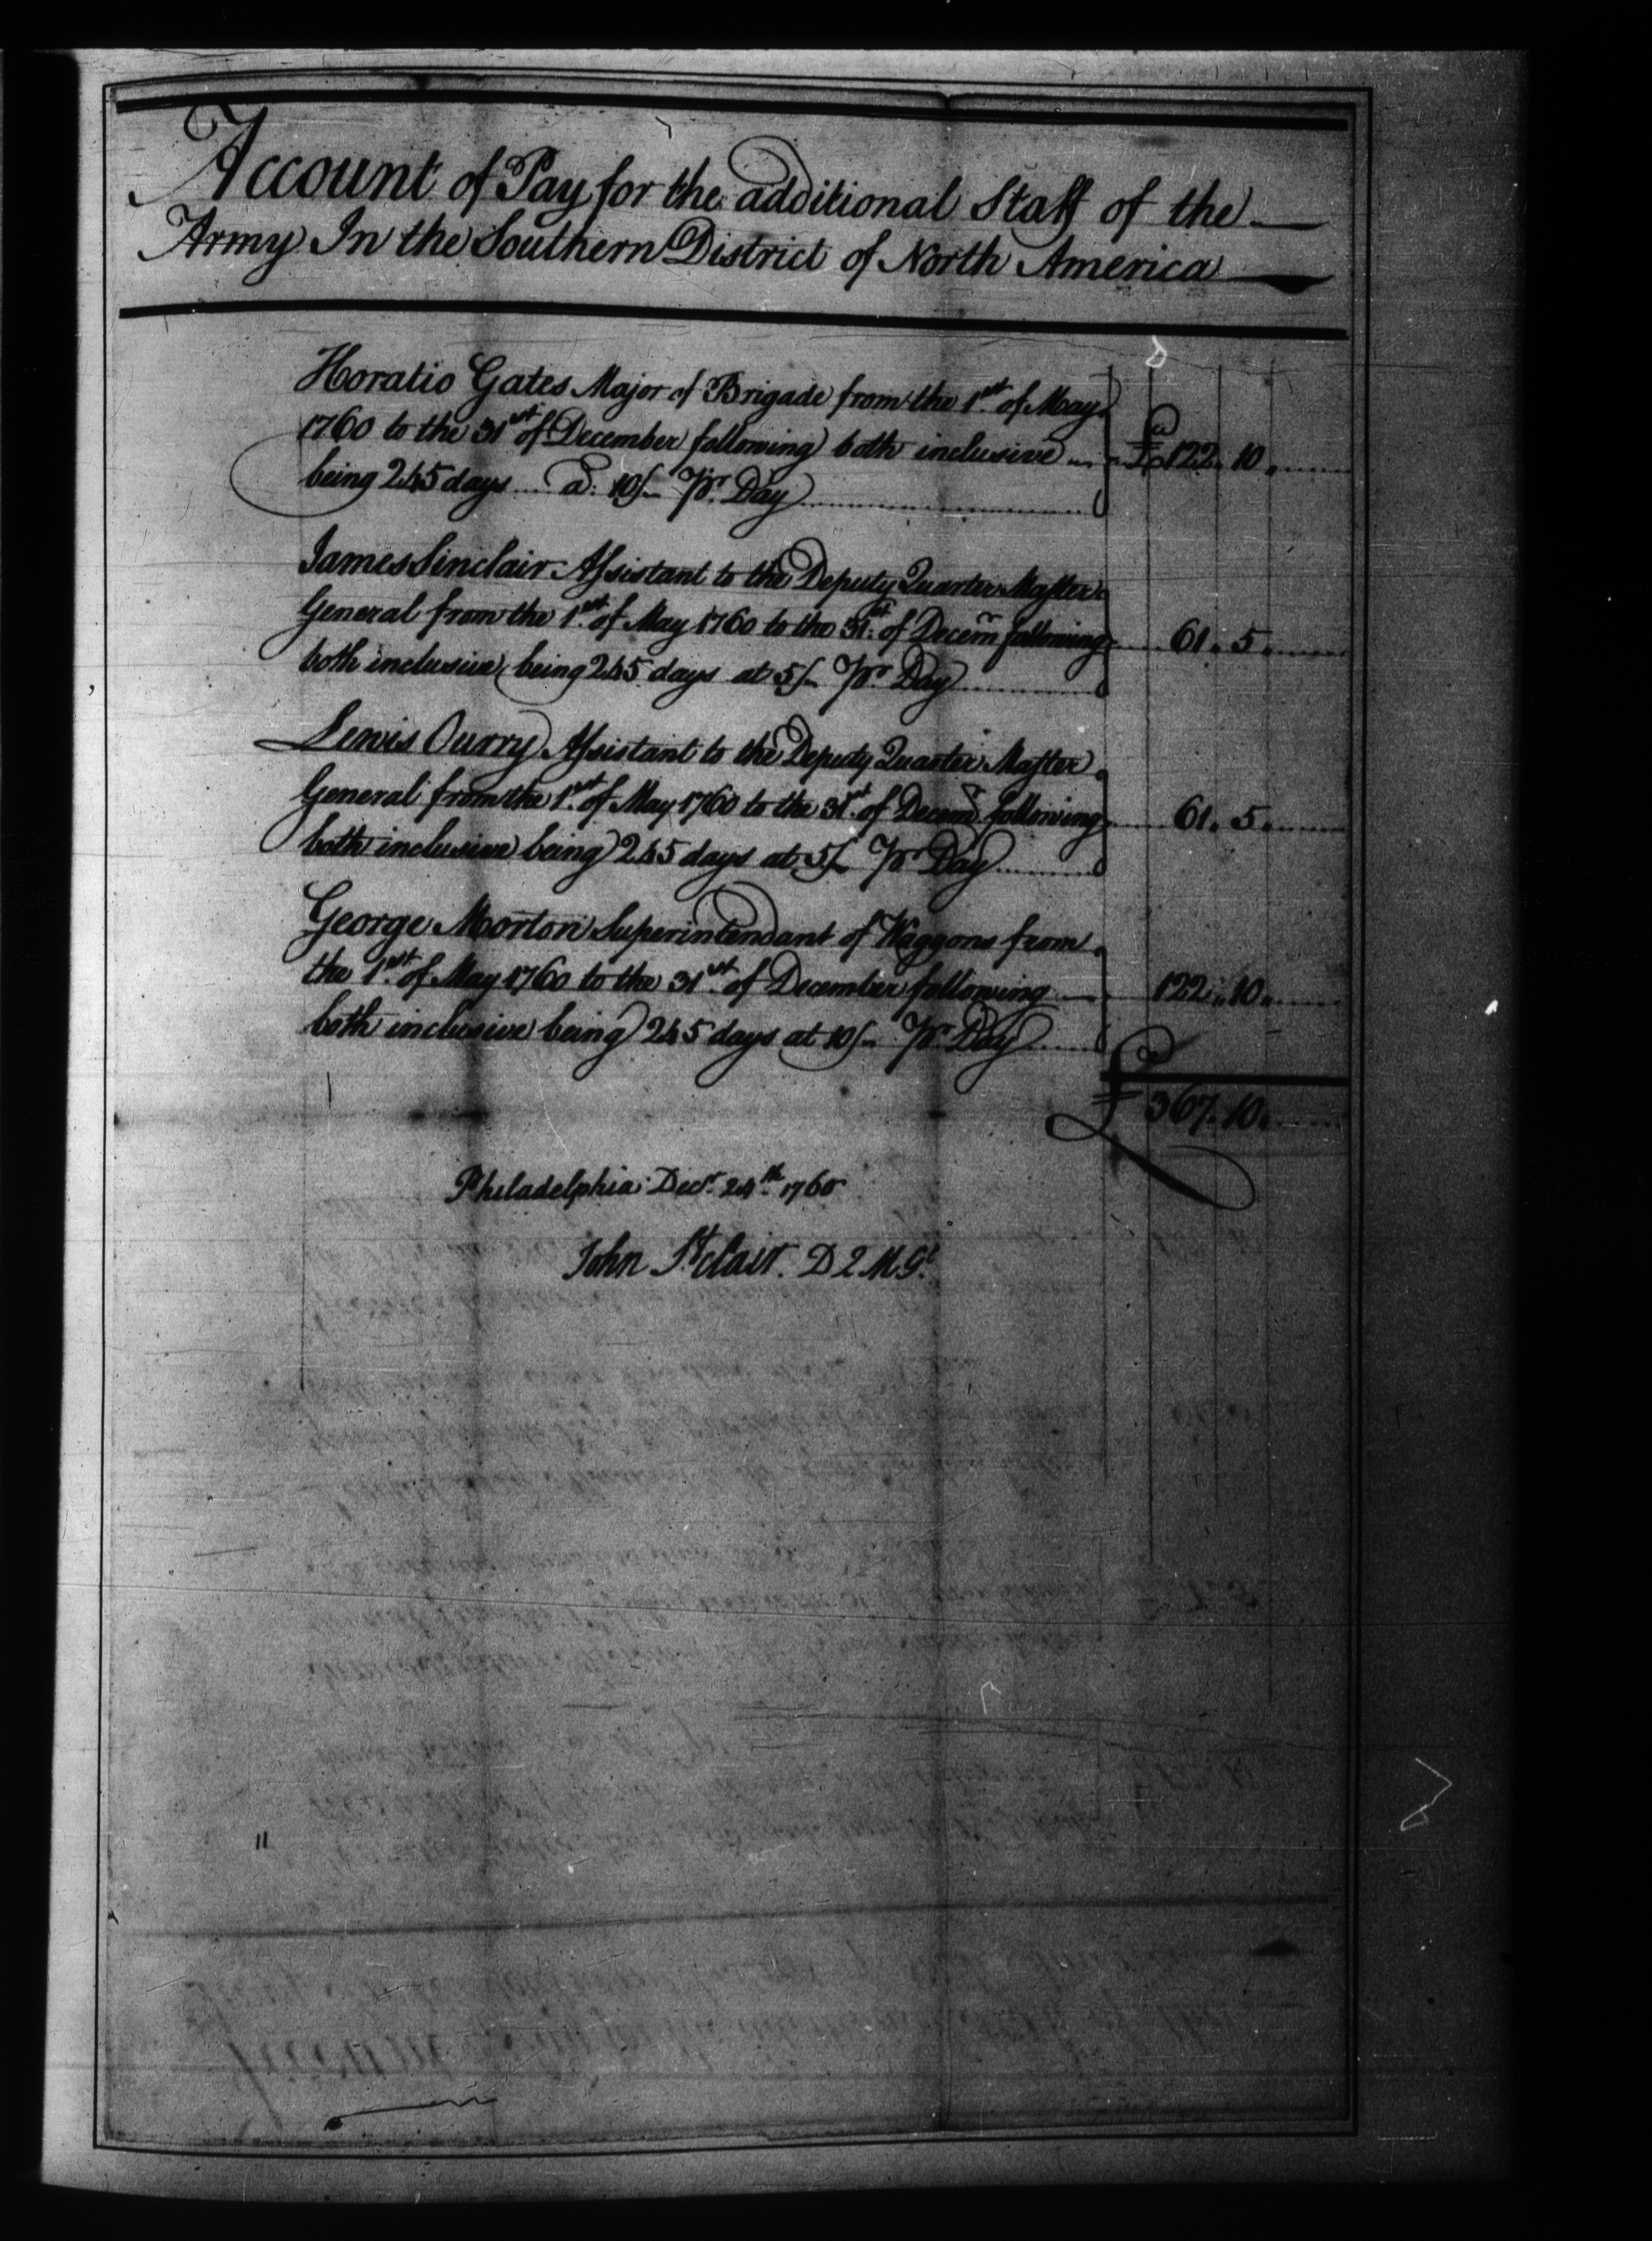 Account of Pay for the additional Staff of the
Army In the Southern District of North America
Horatio Gates Major of Brigade from the 1.st of May
1760 to the 31st of December following both inclusive £122 " 10 "
being 245 days a. 10/- Pr. Day
James Sinclair Assistant to the Deputy Quarter Master
General from the 1.st of May 1760 to the 31.st of Decemr following 61 " 5 "
both inclusive being 245 days at 5/- Pr Day
Lewis Ourry Assistant to the Deputy Quarter Master
General from the 1.st of May 1760 to the 31.st of Decemr following 61 " 5 "
both inclusive being 245 days at 5/- Pr Day
George Morton Superintendant of Waggons from
the 1.st of May 1760 to the 31st of December following 122 " 10 "
both inclusive being 245 days at 10/- Pr Day
£ 367 " 10 "
Philadelphia Decr. 24th. 1760
John St Clair. D Q M Gl.